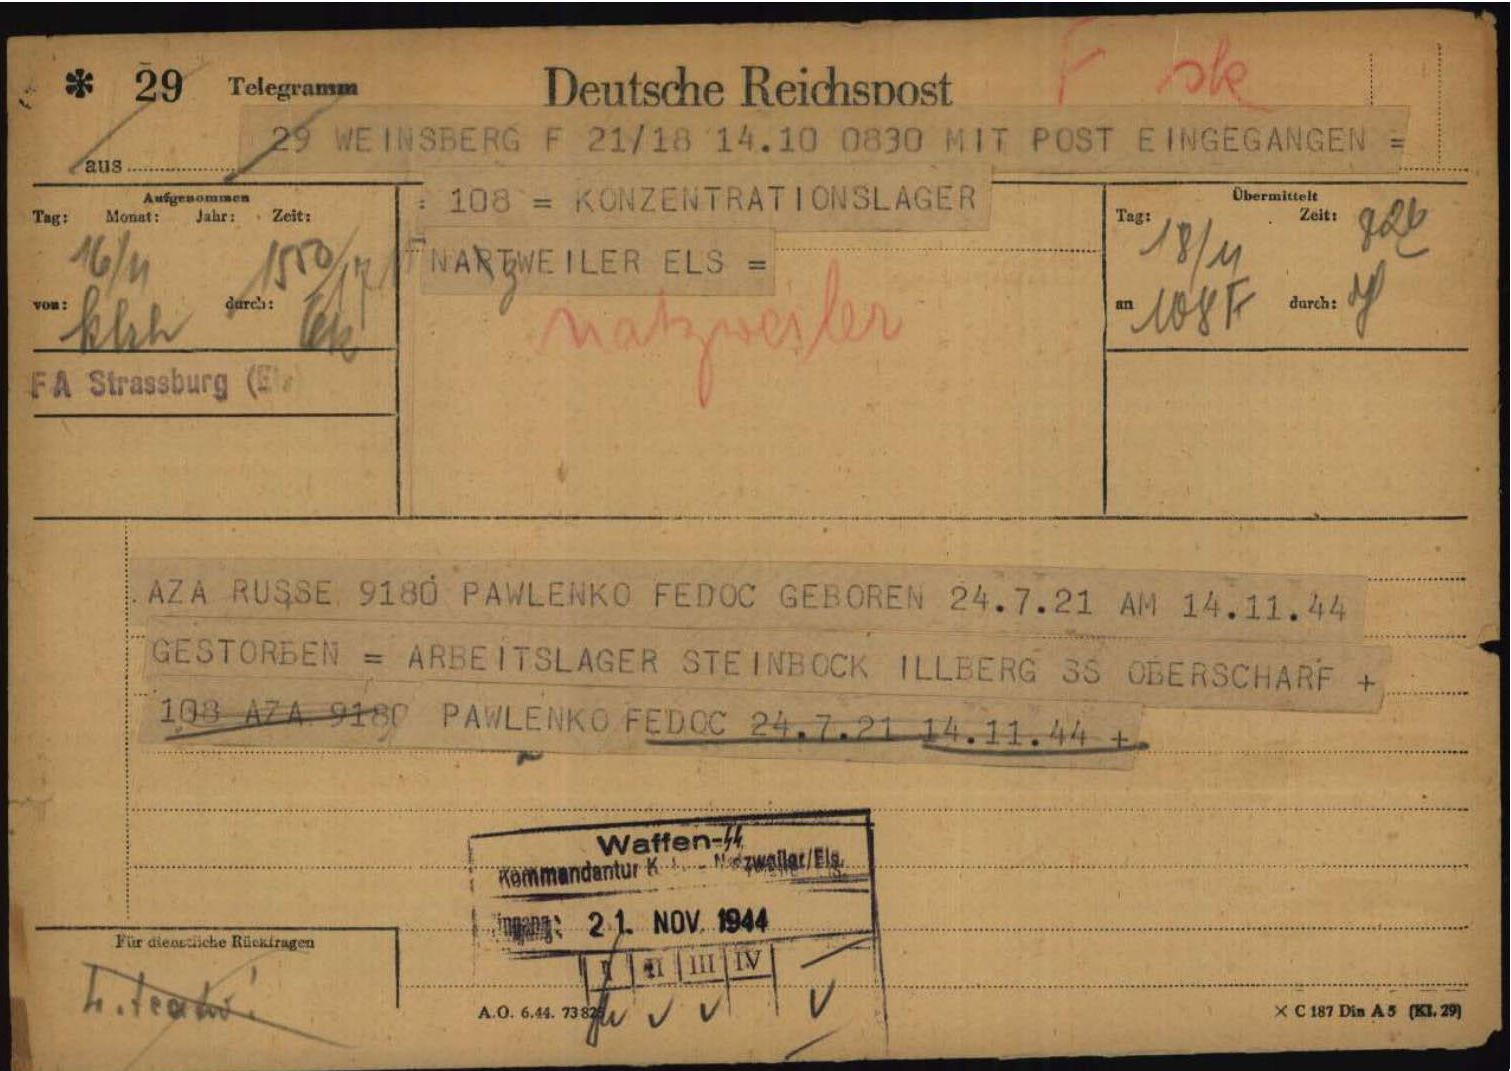 * 29 Telegramm Deutsche Reichspost F sk
29 WEINSBERG F 21/18 14.10 0830 MIT POST EINGEGANGEN =
aus
: 108 = KONZENTRATIONSLAGER
NARTWEILER ELS =
z
natzweiler
Aufgenommen
Tag: Monat: Jahr: Zeit:
16/11 1550/17
von: durch:
FA Strassburg (E
Übermittelt
Tag: Zeit:
18/11 826
an durch:
108 F
AZA RUSSE 9180 PAWLENKO FEDOC GEBOREN 24.7.21 AM 14.11.44
GESTORBEN = ARBEITSLAGER STEINBOCK ILLBERG SS OBERSCHARF +
108 AZA 9180 PAWLENKO FEDOC 24.7.21 14.11.44 +
Waffen-SS
Kommandantur K Natzweiler/Els.
Eingang: 21. NOV. 1944
I II III IV
Für dienstliche Rückfragen
A.O. 6.44. 73828
× C 187 Din A 5 (Kl. 29)